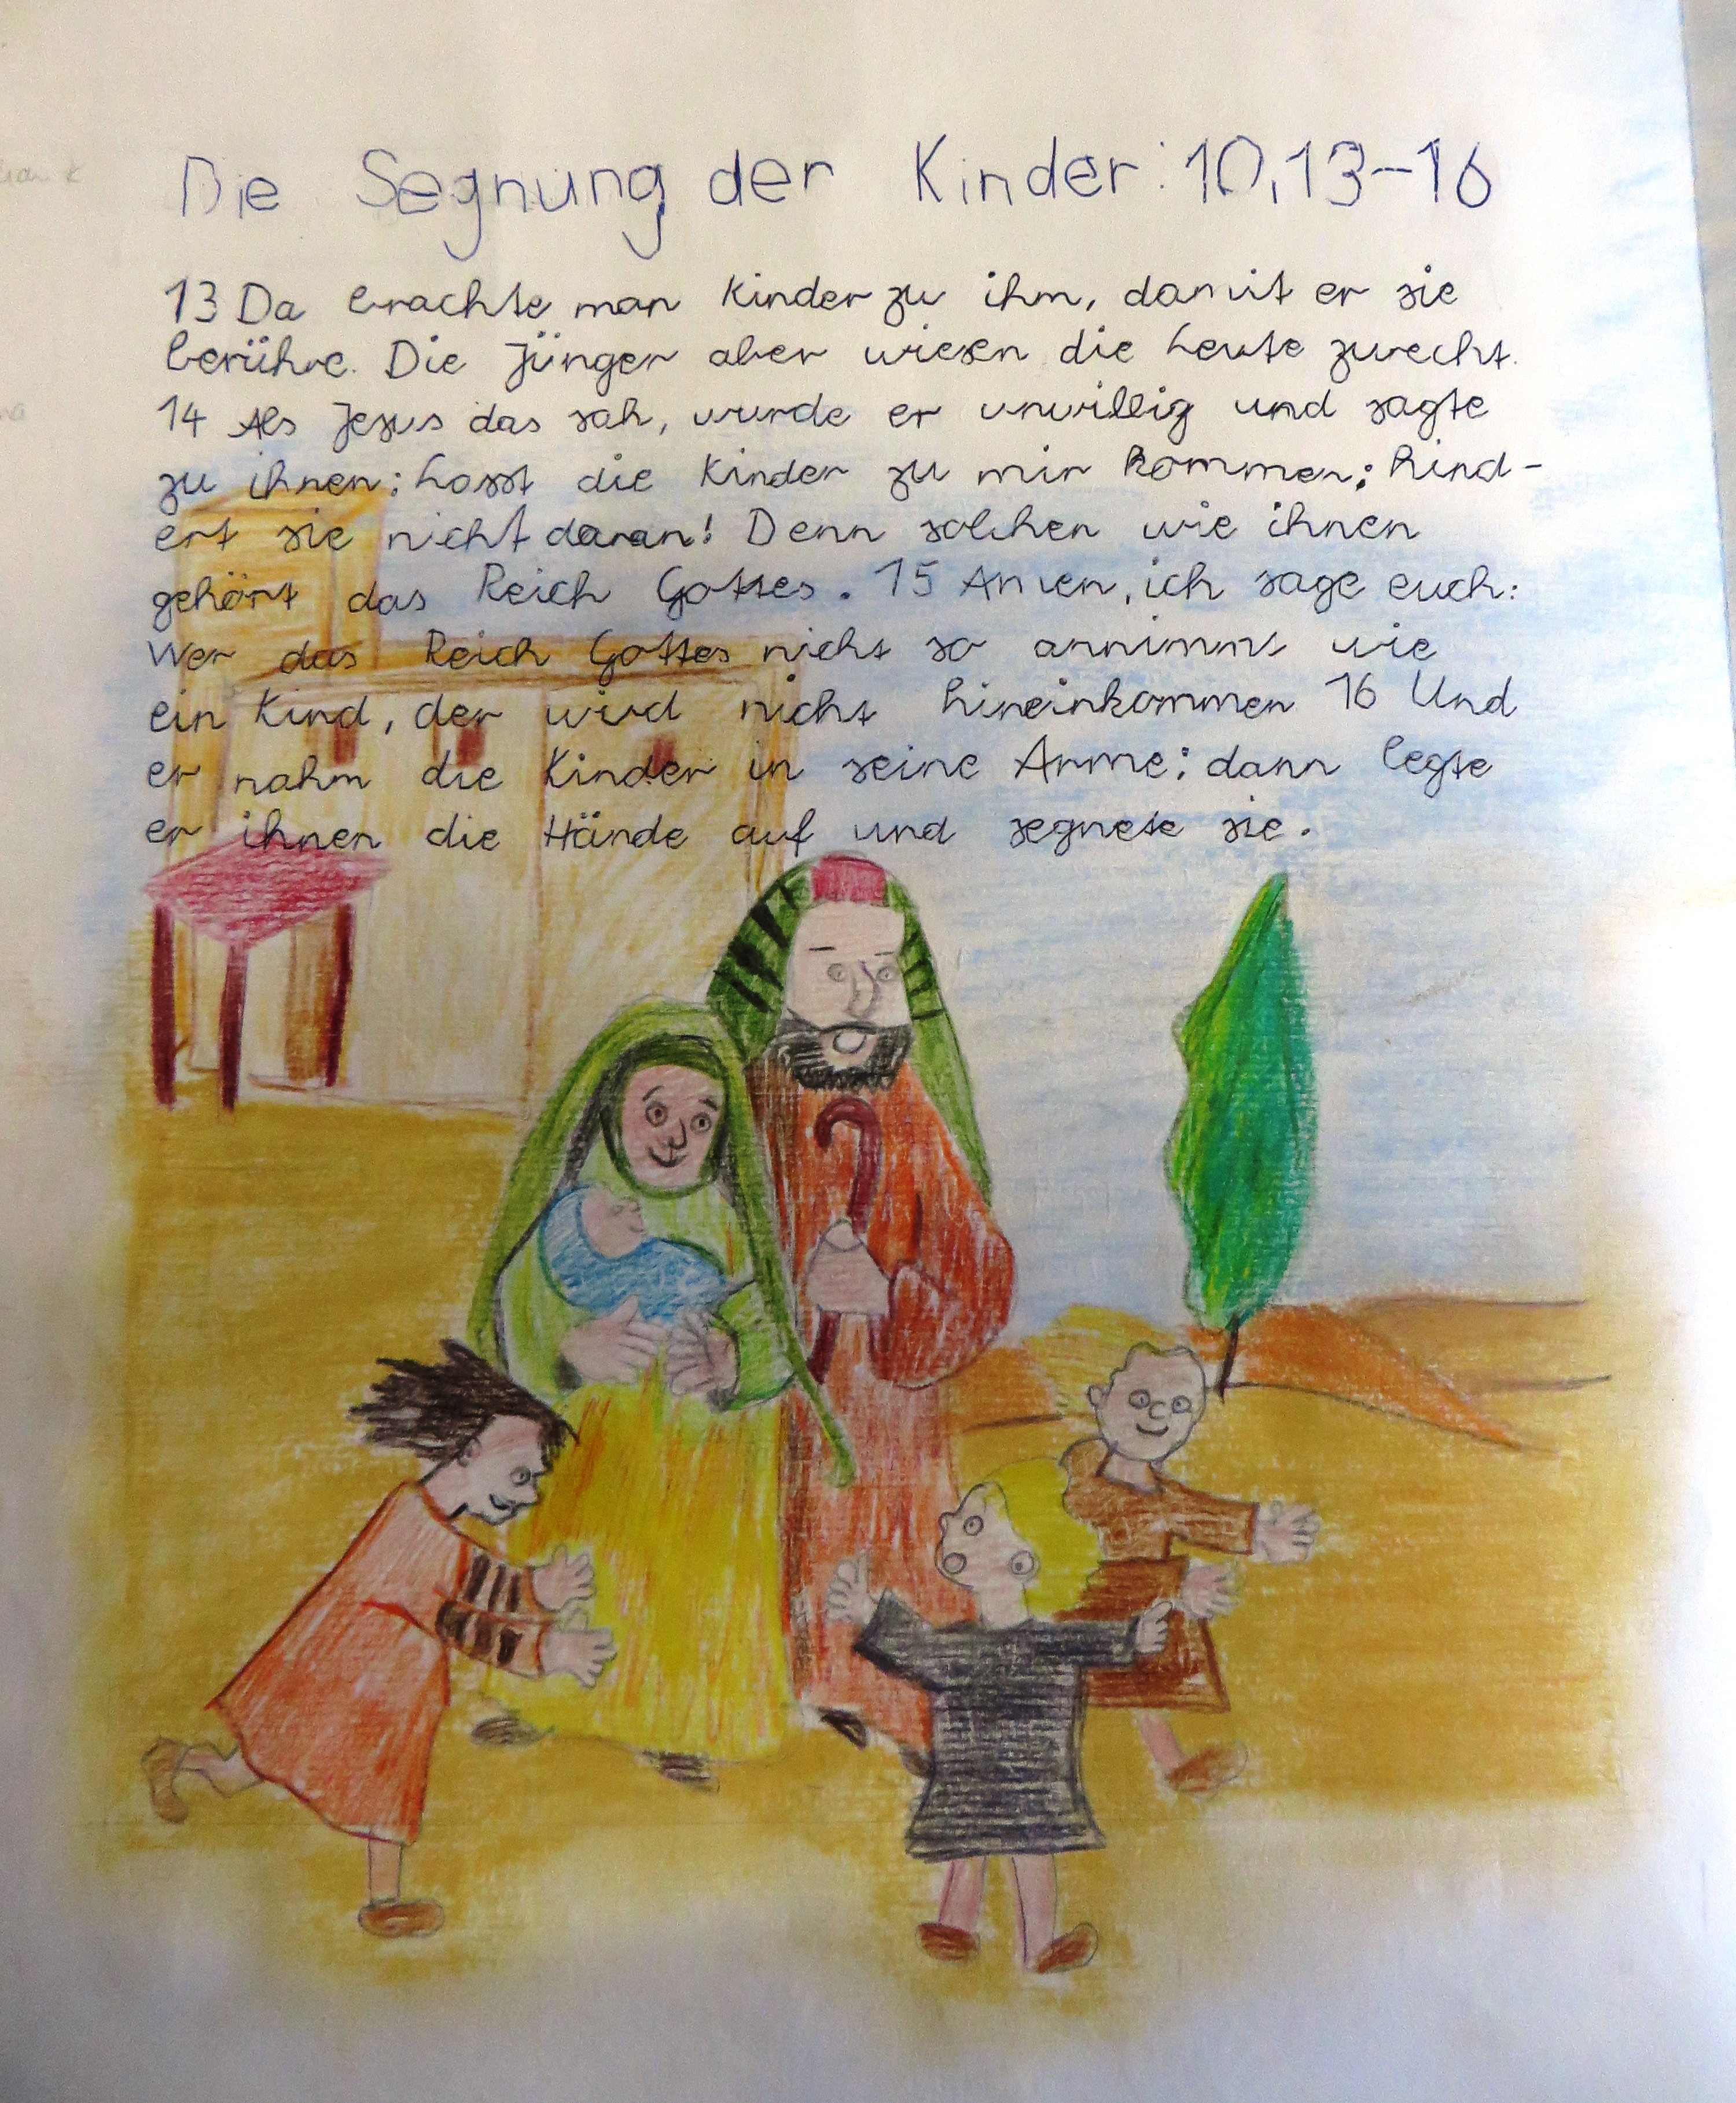 Die Segnung der Kinder: 10,13-16
13 Da brachte man Kinder zu ihm, damit er sie
berühre. Die Jünger aber wiesen die Leute zurecht.
14 Als Jesus das sah, wurde er unwillig und sagte
zu ihnen: Lasst die Kinder zu mir kommen; hind-
ert sie nicht daran! Denn solchen wie ihnen
gehört das Reich Gottes. 15 Amen, ich sage euch:
Wer das Reich Gottes nicht so annimmt wie
ein Kind, der wird nicht hineinkommen 16 Und
er nahm die Kinder in seine Arme; dann legte
er ihnen die Hände auf und segnete sie.